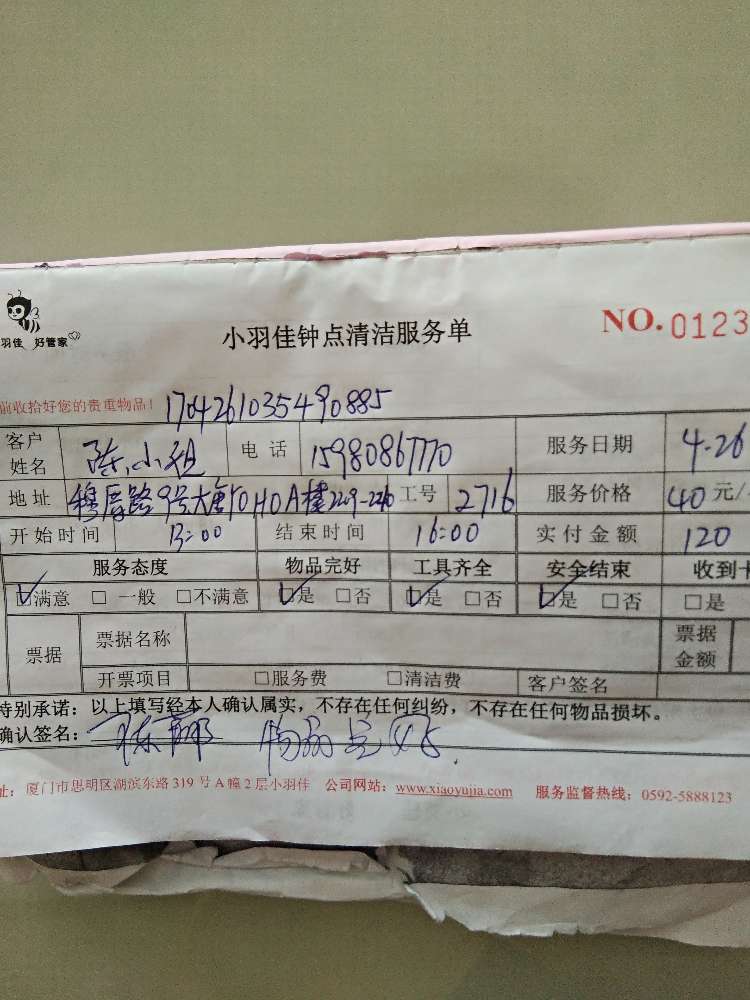 羽佳 好管家
小羽佳钟点清洁服务单
NO. 0123
前收拾好您的贵重物品！ 1704261035490885
客户姓名 陈小姐 电话 15980867770 服务日期 4-26
地址 穆厝路9号大唐YOHO A楼2209-2210 工号 2716 服务价格 40元/
开始时间 13:00 结束时间 16:00 实付金额 120
服务态度 物品完好 工具齐全 安全结束 收到卡
☑满意 □一般 □不满意 ☑是 □否 ☑是 □否 ☑是 □否 □是
票据 票据名称 票据金额
开票项目 □服务费 □清洁费 客户签名
特别承诺：以上填写经本人确认属实，不存在任何纠纷，不存在任何物品损坏。
确认签名： 物品完好
址：厦门市思明区湖滨东路319号A幢2层小羽佳 公司网站：www.xiaoyujia.com 服务监督热线：0592-5888123